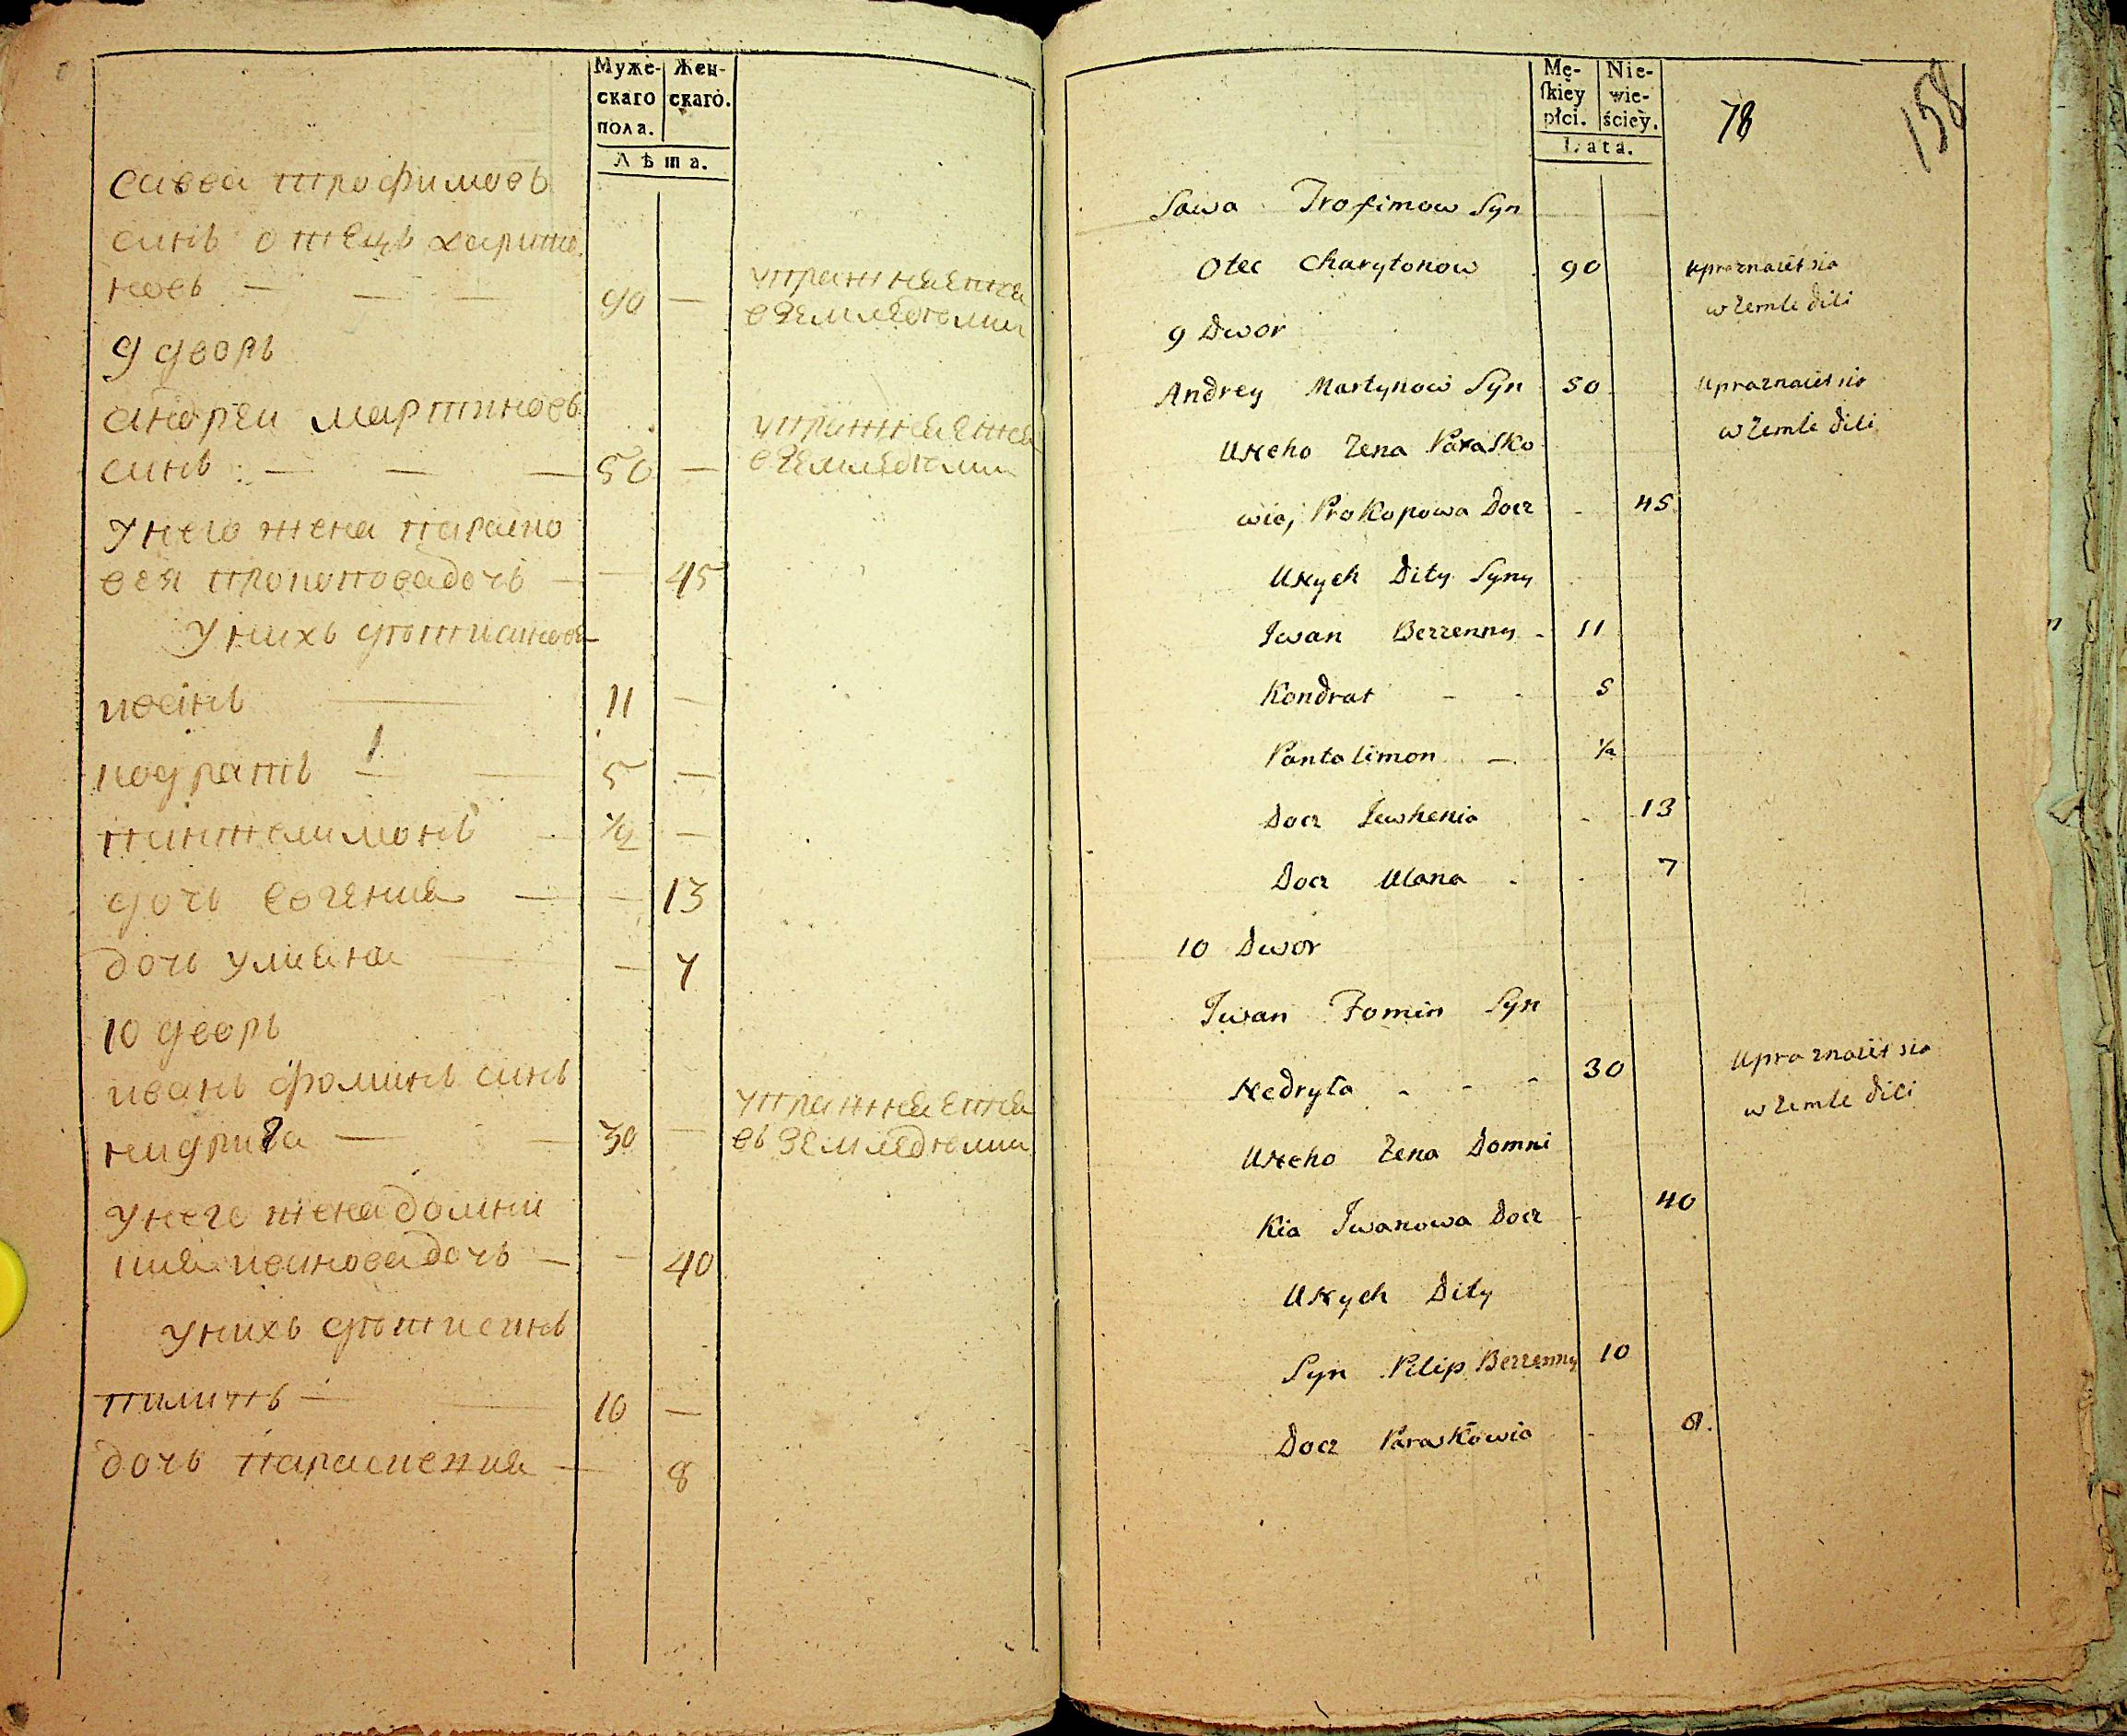 Муже- Жен-
скаго скаго.
пола.
Лѣта.
савва трофимовъ
синъ отецъ харито
новъ — — — 90 — упражняется
в земледелии
9 дворъ
андреи мартиновъ
синъ : — — — 50 — упражняется
в земледелии
у него жена параско
вея прокопова дочь — — 45
у нихъ дѣти синове
иванъ — 11 —
кодратъ — — 5 —
пантелимонъ — 1/2 —
дочь евгения — — 13
дочь улияна — — 7
10 дворъ
иванъ фоминъ синъ
нидрила — — 30 — упражняется
въ земледелии
у него жена домни
кия иванова дочь — — 40
у нихъ дѣти синъ
пилипъ — 10 —
дочь параскения — 8
Mę- Nie-
ſkiey wie-
płci. ściey.
Lata.
78
158
Sawa Trofimow Syn
Otec Charytonow 90 upraznaiet sia
w zemle dili
9 Dwor
Andrey Martynow Syn 50 upraznaiet sia
w zemle dili
Uneho Zena Parasko
wia, Prokopowa Docz - 45
Unych Dity Syny
Iwan Bezzenny - 11
Kondrat - - 5
Pantalimon — 1/2
Docz Iewhenia - 13
Docz Ulana - - 7
10 Dwor
Iwan Fomin Syn
Nedryła - - - 30 upraznaiet sia
w zemle dili
Uneho Zena Domni
kia Iwanowa Docz - 40
Unych Dity
Syn Pilip Bezzenny 10
Docz Paraskowia - 8.